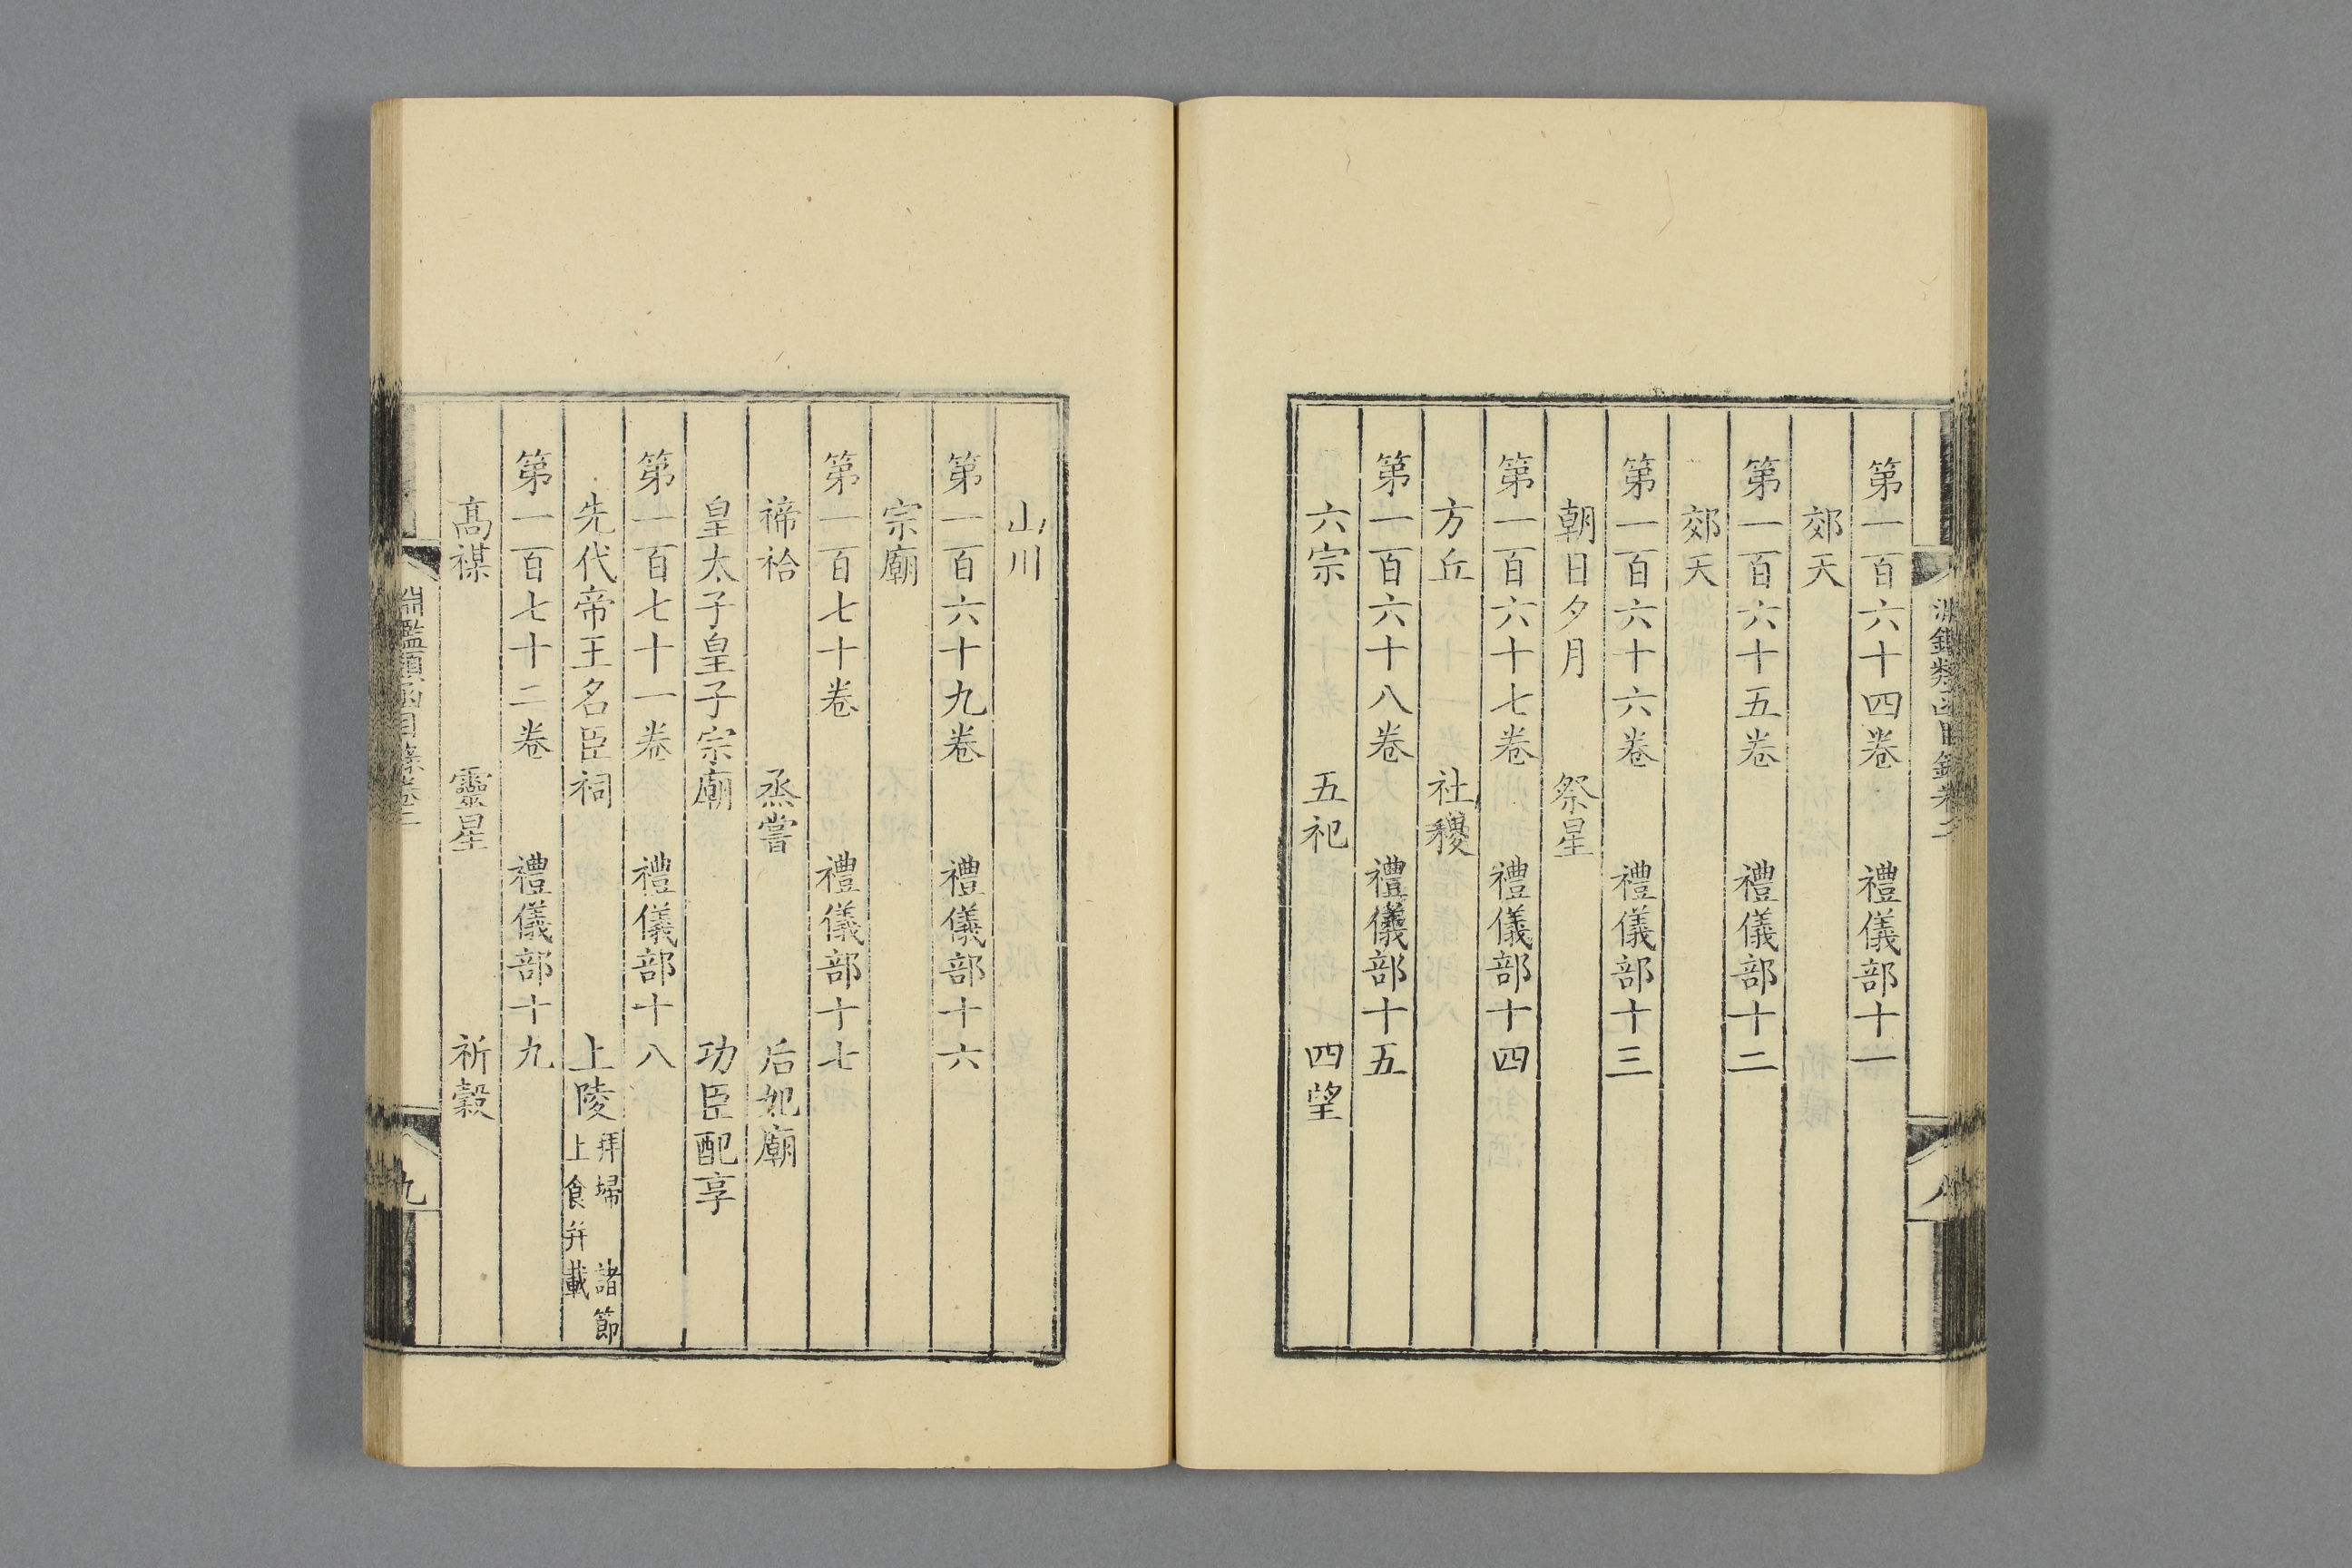 第一百六十四卷 禮儀部十一
郊天
第一百六十五卷 禮儀部十二
郊天
第一百六十六卷 禮儀部十三
朝日夕月 祭星
第一百六十七卷 禮儀部十四
方丘 社稷
第一百六十八卷 禮儀部十五
六宗 五祀 四望
山川
第一百六十九卷 禮儀部十六
宗廟
第一百七十卷 禮儀部十七
禘祫 烝嘗 后妃廟
皇太子皇子宗廟 功臣配享
第一百七十一卷 禮儀部十八
先代帝王名臣祠 上陵 拜埽 諸節上食并載
第一百七十二卷 禮儀部十九
髙禖 靈星 祈穀
淵鑑類函目錄卷二
九
淵鑑類函目錄卷二
八